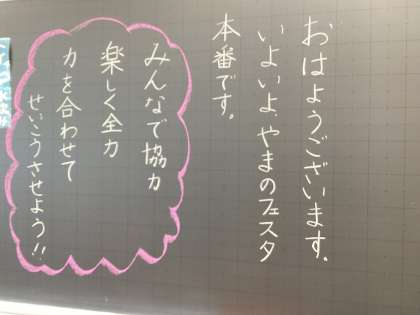 おはようございます。
いよいよ、やまのフェスタ
本番です。
みんなで協力
楽しく全力
力を合わせて
せいこうさせよう!!